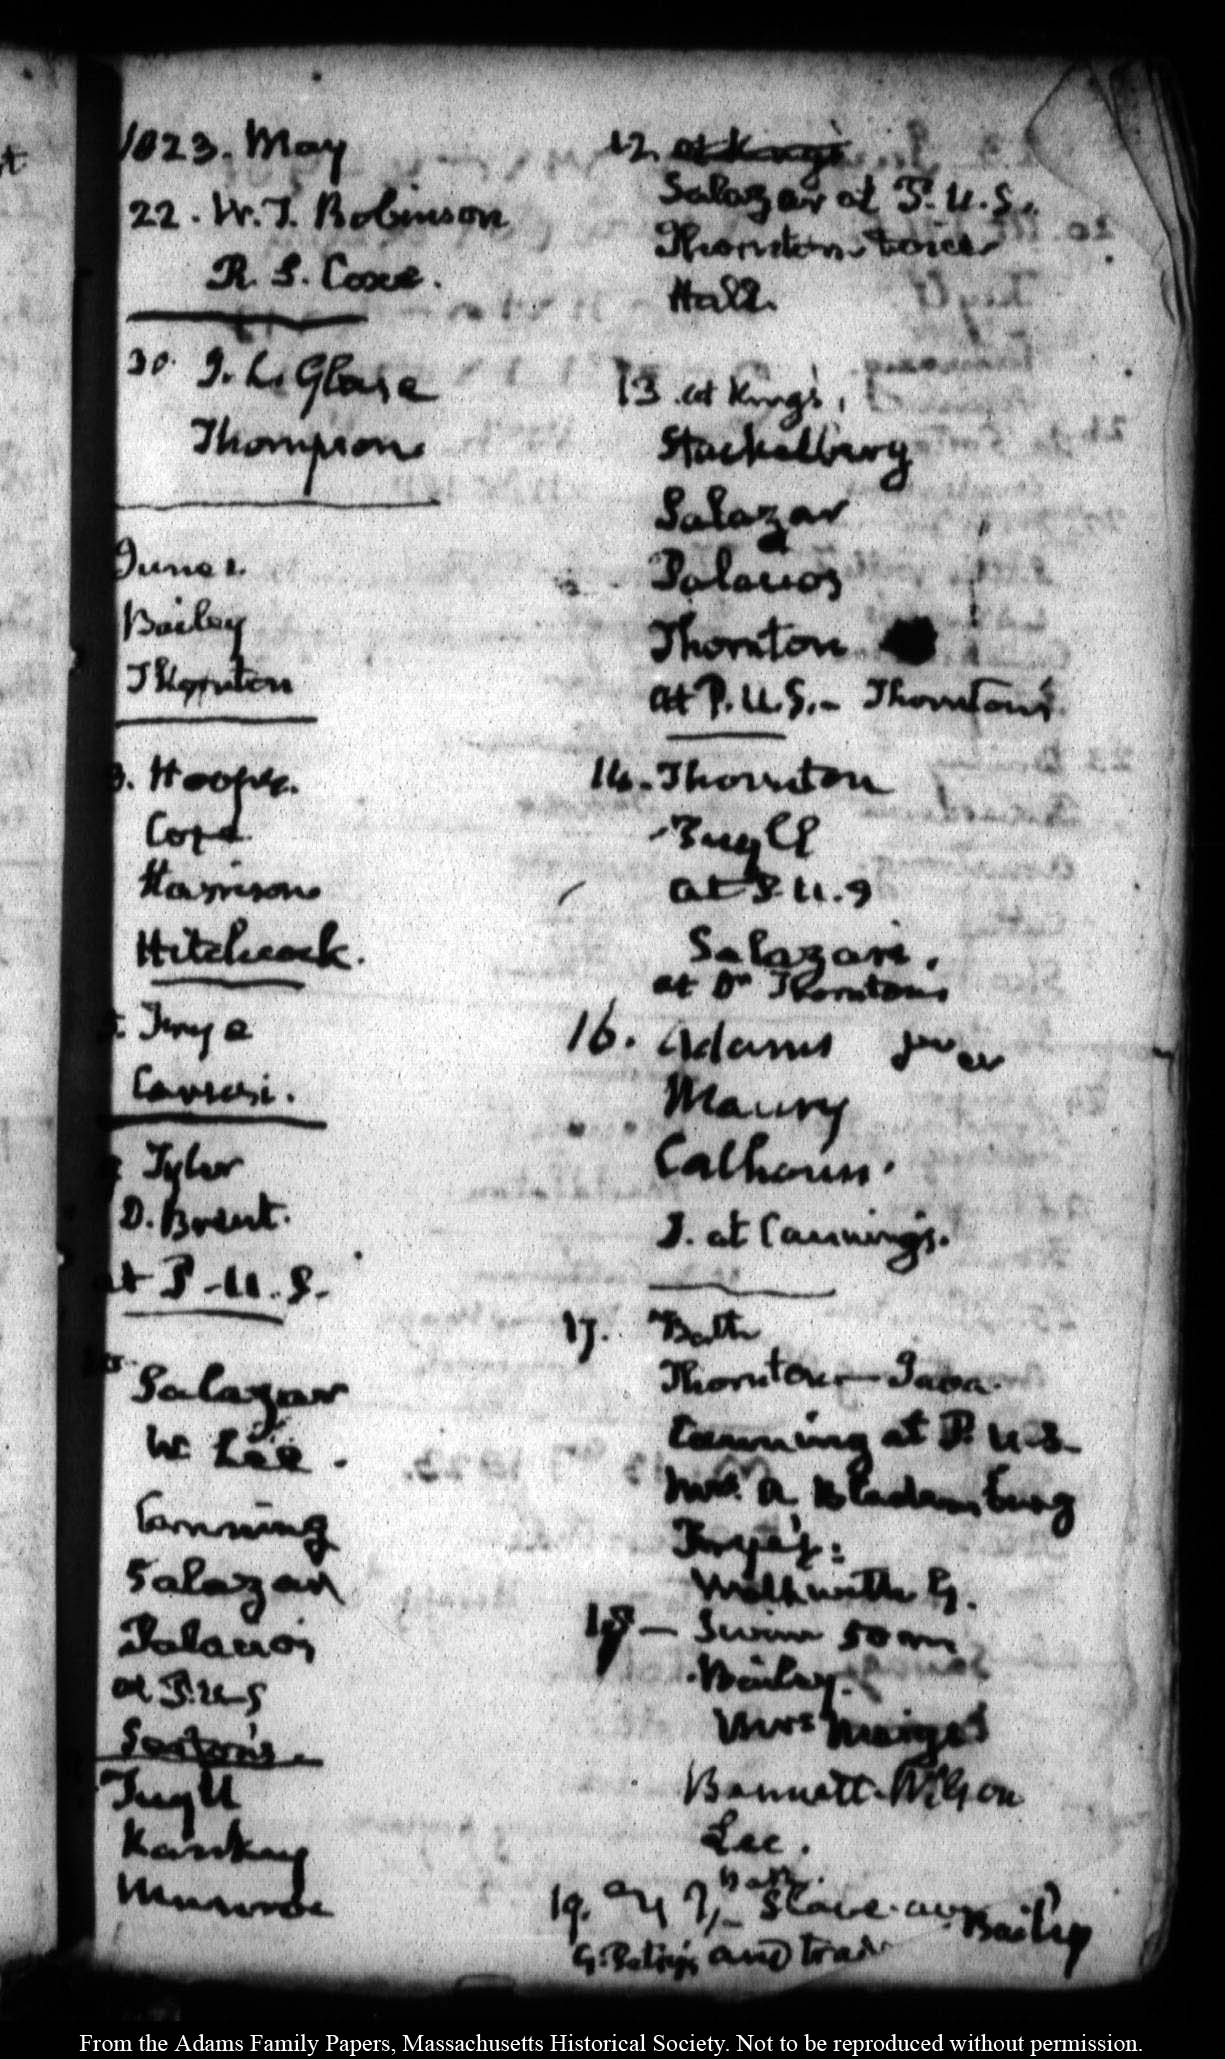 1823. May
22. W. T. Robinson
R. S. Coxe.
30. J. L. Glase
Thompson
June 2.
Bailey
Thornton
3. Hooper.
Cope
Harrison
Hitchcock.
5. Frye
Carusi.
Tyler
D. Brent.
at P. U. S.
Salazar
W. Lee.
Canning
Salazar
Palacios
at P. U. S
Seaton's.
Tuyll
Kankey
Munroe
12. at King's
Salazar at P. U. S.
Thornton twice
Hall.
13. at King's.
Stackelberg
Salazar
Palacios
Thornton
at P. U. S. - Thornton's
14. Thornton
Tuyll
at P. U. S
Salazar.
at Dr Thorntons
16. Adams
Maury
Calhoun.
J. at Canning's.
17. Bath
Thornton -
Canning at P. U. S.
Bladensburg
Frye's.
Walk with G.
18 - Swim 50 m
Bailey.
Mrs Meigs
Bennett. Wilson
Lee.
19.
Bailey
and
From the Adams Family Papers, Massachusetts Historical Society. Not to be reproduced without permission.